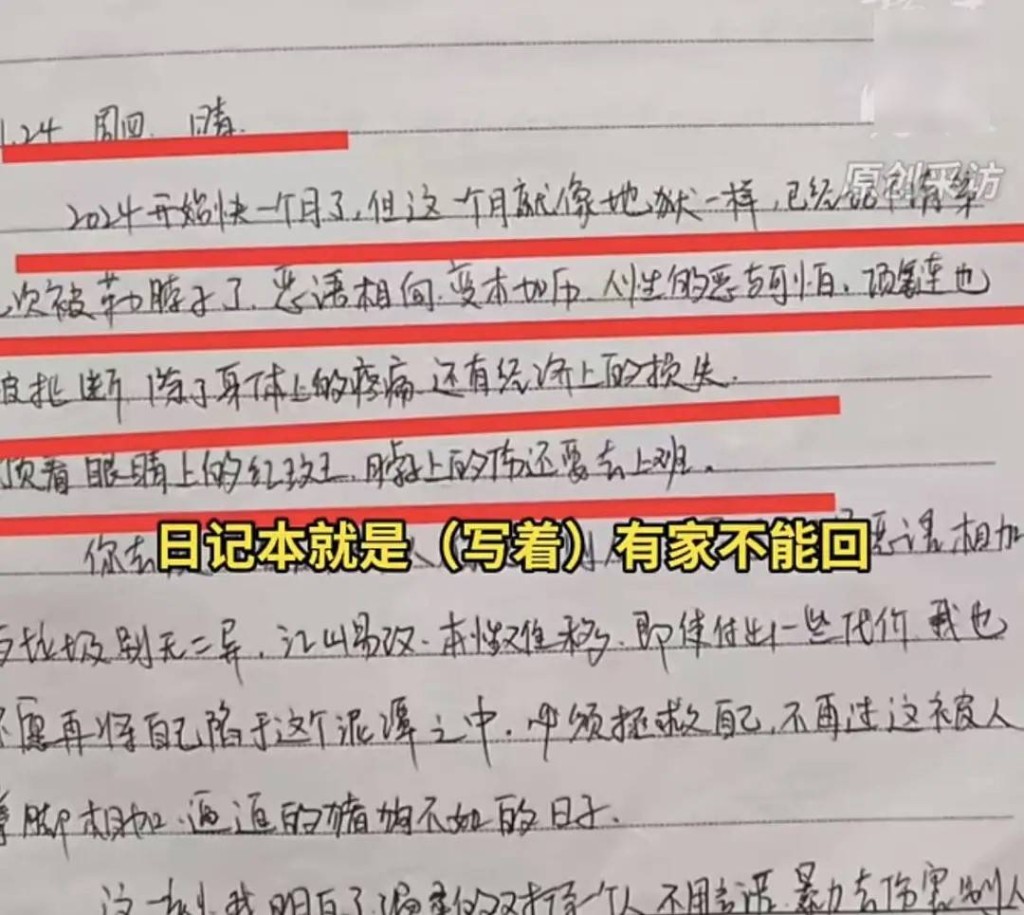 1.24 周四. 晴.
原创采访
2024开始快一个月了,但这一个月就像地狱一样,已经
次被勒脖子了.恶语相向.变本加历.人性的恶与可怕.项链也
被扯断 除了身体上的疼痛 还有经济上的损失.
顶着眼睛上的红 脖子上的伤还要去上班.
日记本就是（写着）有家不能回
你去 恶语相加
与垃圾别无二异.江山易改.本性难移.即使付出一些代价 我也
不愿再将自己陷于这个泥潭之中. 须拯救自己,不再过这被人
拳脚相加.逼迫的猪狗不如的日子.
这一刻 我明白了 温柔的对待一个人 不用言语.暴力去伤害别人